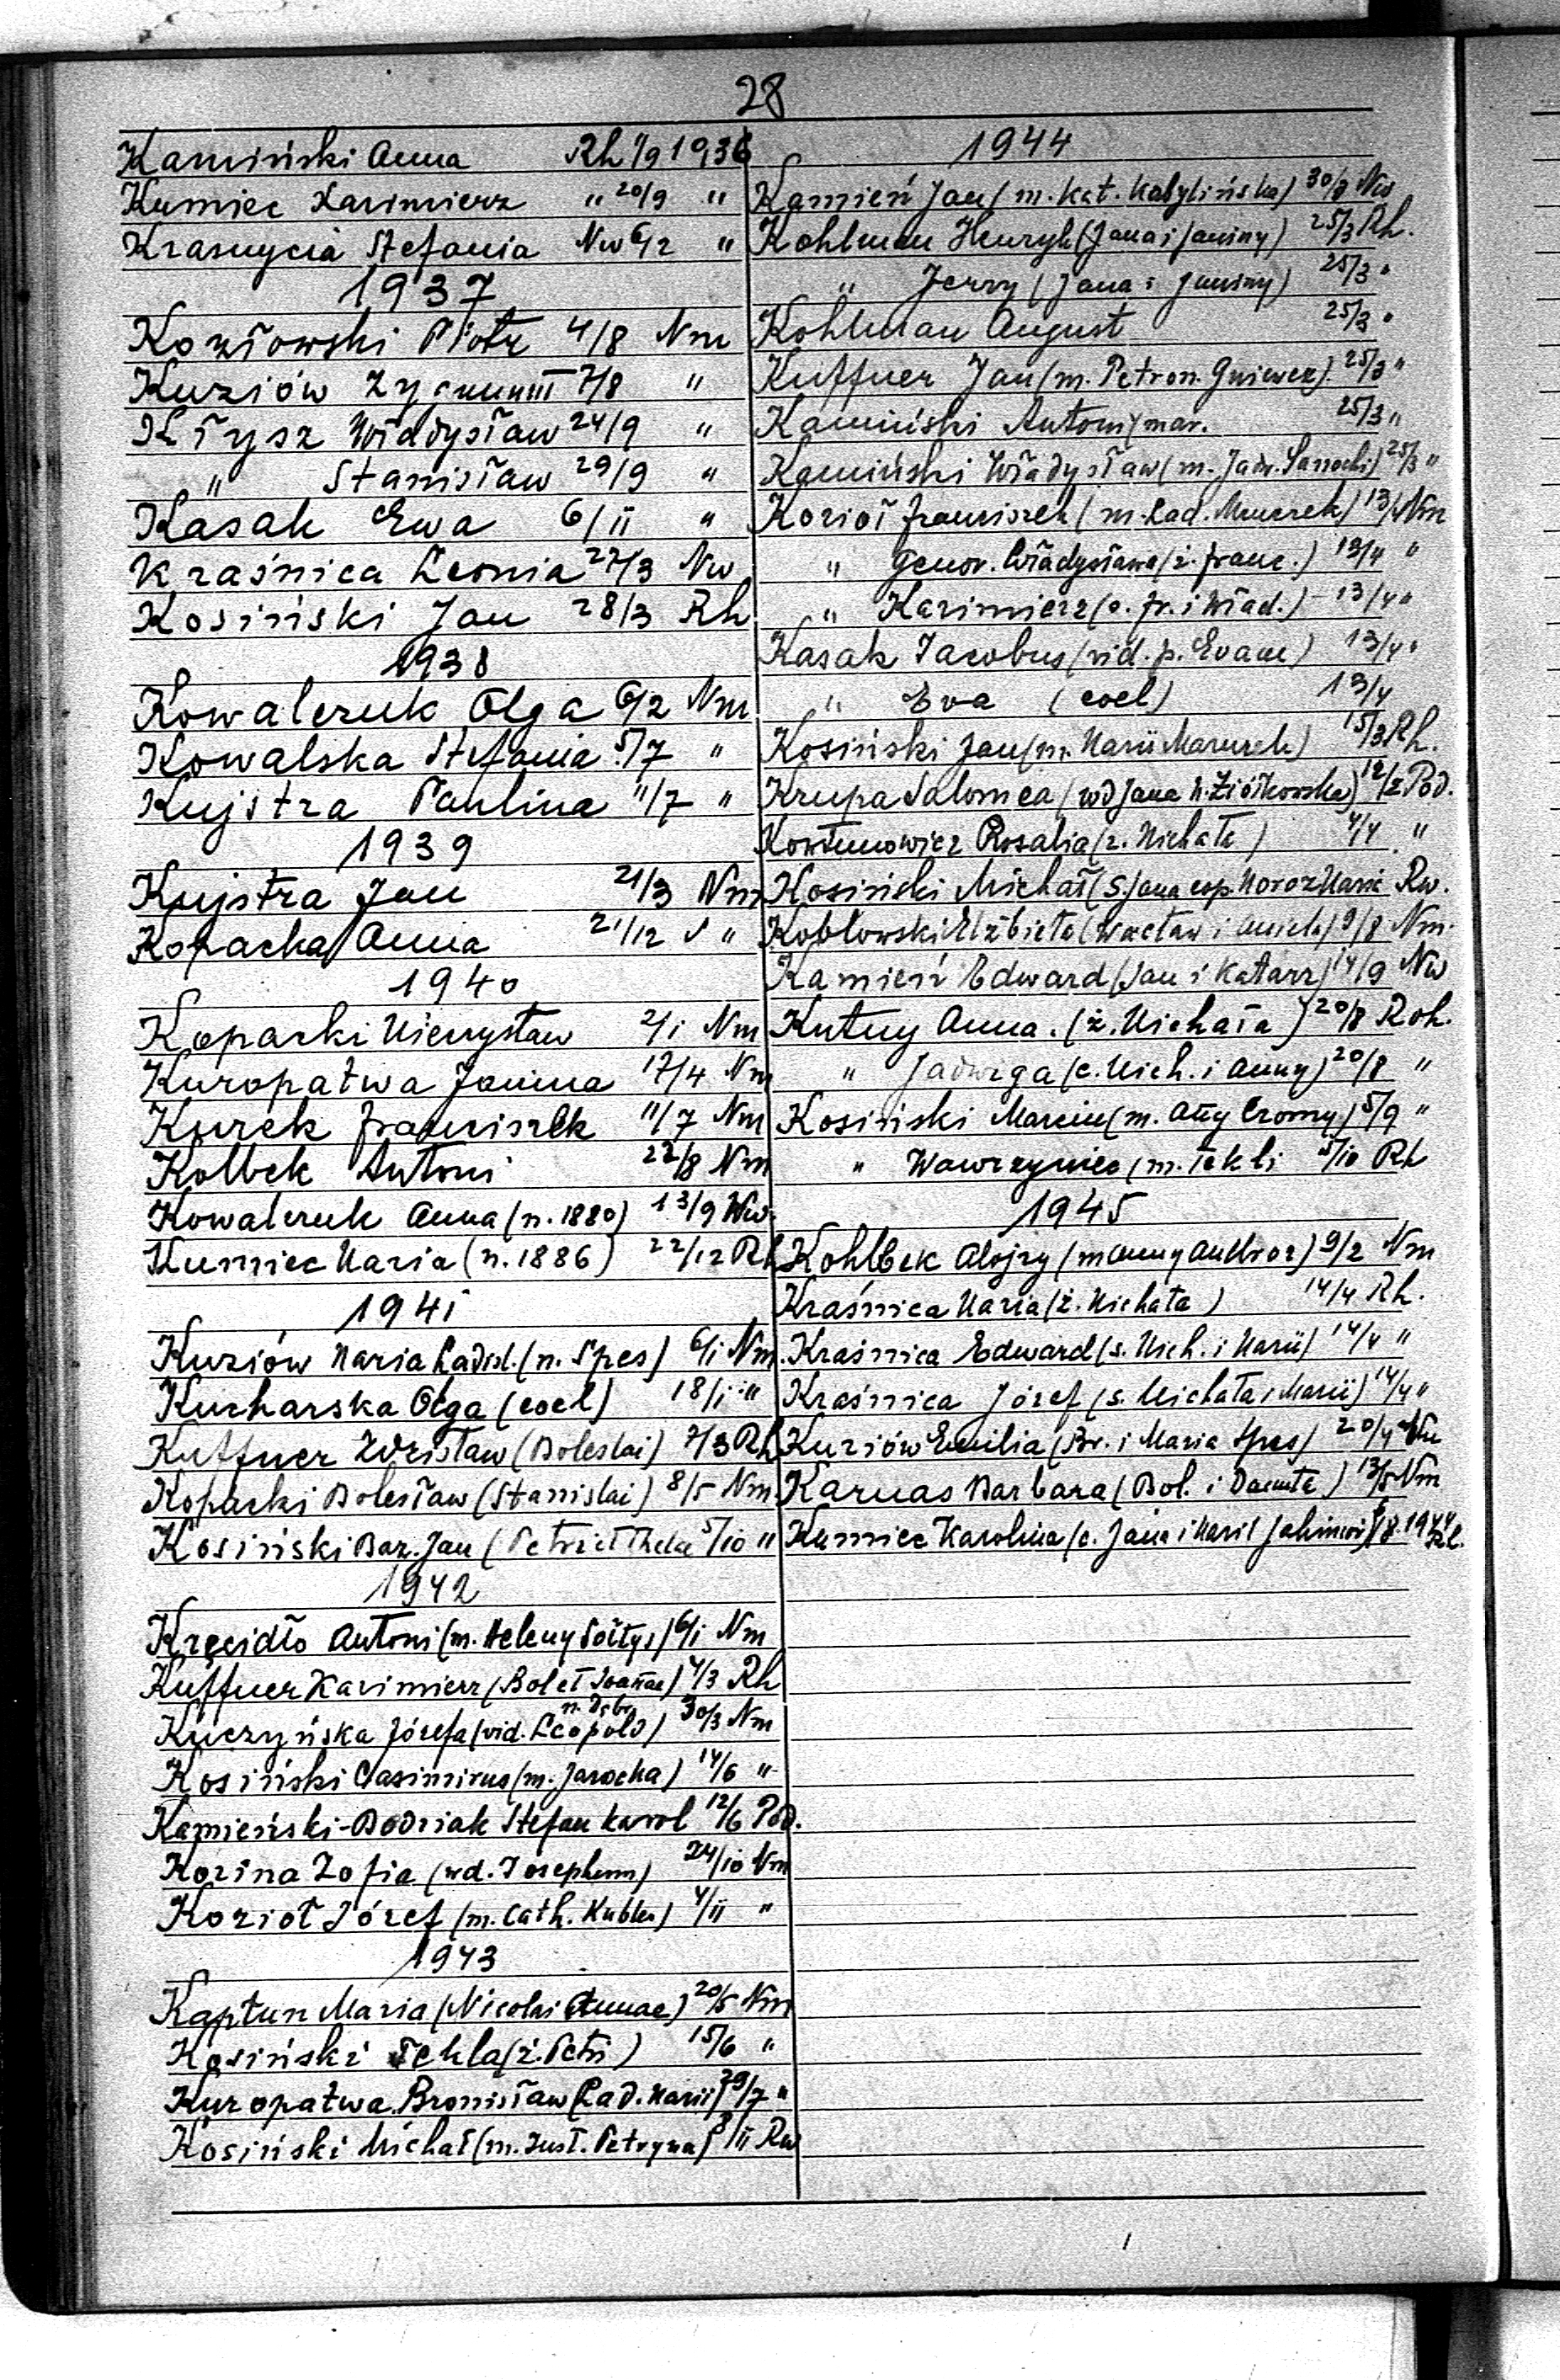 28
Kamiński Anna Rh 1/9 1936
Kumiec Kazimierz " 20/9 "
Krasnycia Stefania Nw 6/12 "
1937
Kozłowski Piotr 4/8 Nm
Kuziów Zygmunt 7/8 "
Kłysz Władysław 24/9 "
" Stanisław 29/9 "
Kasak Ewa 6/11 "
Kraśnica Leonia 27/3 Nw
Kosiński Jan 28/3 Rh
1938
Kowalczuk Olga 6/2 Nm
Kowalska Stefania 5/7 "
Kujstra Paulina 11/7 "
1939
Kujstra Jan 21/3 Nm
Kopacka Anna 21/12 "
1940
Koparki Mieczysław 2/1 Nm
Kuropatwa Janina 17/4 Nm
Kurek Franciszek 11/7 Nm
Kolbek Antoni 22/8 Nm
Kowalczuk Anna (n. 1880) 13/9 Nw
Kumiec Maria (n. 1886) 22/12 Rh
1941
Kuziów Maria Ladisl. (n. Spes) 6/1 Nm
Kucharska Olga (coel) 18/1 "
Kuffner Zdzisław (Boleslai) 7/3 Rh
Koparki Bolesław (Stanislai) 8/5 Nm
Kosiński Baz. Jan (Petri et Theclae 5/10 "
1942
Kręcidło Antoni (m. Heleny Sołtys) 6/1 Nm
Kuffner Kazimierz (Bol et Joannae) 4/3 Rh
Kuczyńska Józefa (vid. Leopold) 30/3 Nm
Kosiński Casimirus (m. Jarocka) 14/6 "
Kamieński-Bodziak Stefan Karol 12/6 Pod.
Kozina Zofia (wd. Josephum) 24/10 Nm
Kozioł Józef (m. Cath. Kubler) 4/11 "
1943
Kaptun Maria (Nicolai Annae) 20/5 Nm
Kosiński Tekla (ż. Petri) 15/6 "
Kuropatwa Bronisław (Lad. Marii) 29/7 "
Kosiński Michał (m. Just. Petryna) 8/11 Rw
1944
Kamień Jan (m. Kat. Kobylińska) 30/8 Nw
Kohlman Henryk (Jana i Janiny) 25/3 Rh.
" Jerzy (Jana i Janiny) 25/3 "
Kohlman August 25/3 "
Kuffner Jan (m. Petron. Gniewek) 25/3 "
Kamiński Antoni mar. 25/3 "
Kamiński Władysław (m. Jadw. Sarnocki) 25/3 "
Kozioł Franciszek (m. Lad. Mruczek) 13/4 Nm
" Genov. Władysława (ż. Franc.) 13/4 "
" Kazimierz (c. Fr. i Wład.) 13/4 "
Kasak Jacobus (vid. p. Evam) 13/4 "
" Eva (coel) 13/4
Kosiński Jan (m. Marii Maruszek) 15/3 Rh.
Krupa Salomea (wd Jana n. Ziółkowska) 12/2 Pod.
Kowtunowicz Rosalia (ż. Michała) 4/4 "
Kosiński Michał (s. Jana cop. Moroz Marii Rw.
Kobłowski Elżbieta (Wacław i Aniela) 9/8 Nm.
Kamień Edward (Jan i Katarz) 14/9 Nw
Kutny Anna. (ż. Michała) 20/8 Roh.
" Jadwiga (c. Mich. i Anny) 20/8 "
Kosiński Marcin (m. Anny Cromy) 5/9 "
" Wawrzyniec (m. Tekli 5/10 Rh
1945
Kohlbek Alojzy (m Anny Ambroz) 9/2 Nm
Kraśnica Maria (ż. Michała) 14/4 Rh.
Kraśnica Edward (s. Mich. i Marii) 14/4 "
Kraśnica Józef (s. Michała i Marii) 14/4 "
Kuziów Emilia (Br. i Maria Spes) 20/4 Nm
Karnas Barbara (Bol. i Danuta) 13/5 Nm
Kumiec Karolina (c. Jana i Marii 8. 1944